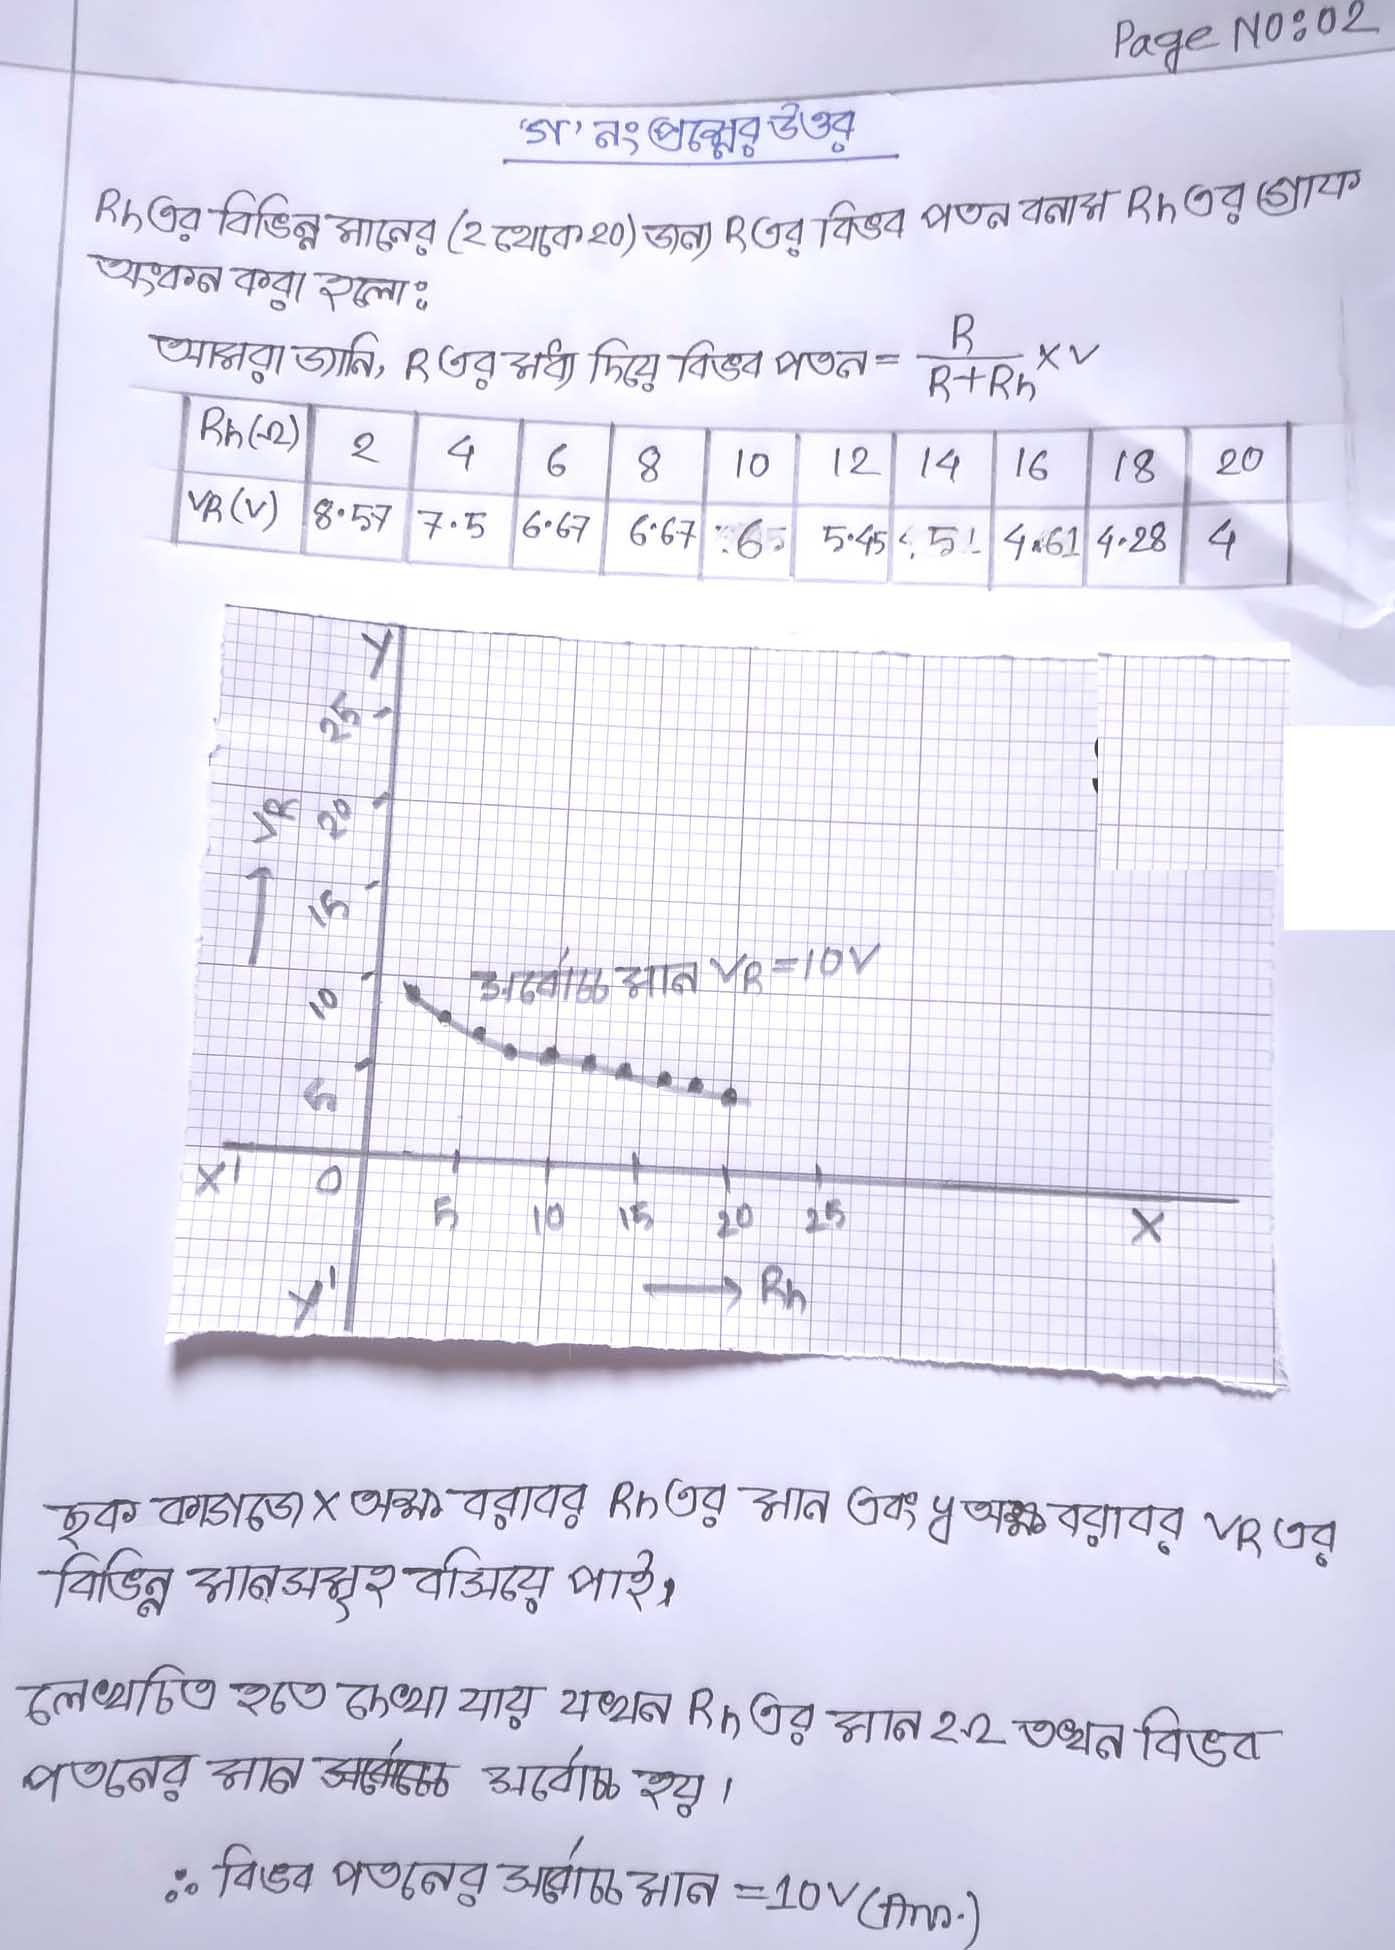 Page No: 02
'গ' নং প্রশ্নের উত্তর
Rh এর বিভিন্ন মানের (2 থেকে 20) জন্য R এর বিভব পতন বনাম Rh এর গ্রাফ
অংকন করা হলোঃ
আমরা জানি, R এর মধ্য দিয়ে বিভব পতন = R/(R+Rh) × V
Rh(Ω) 2 4 6 8 10 12 14 16 18 20
VR(V) 8.57 7.5 6.67 6.67 6 5.45 5 4.61 4.28 4
Y
25
20
VR
15
10
সর্বোচ্চ মান VR = 10V
5
X' 0 5 10 15 20 25 X
Rh
Y'
ছক কাগজে X অক্ষ বরাবর Rh এর মান এবং y অক্ষ বরাবর VR এর
বিভিন্ন মানসমূহ বসিয়ে পাই,
লেখচিত্র হতে দেখা যায় যখন Rh এর মান 2Ω তখন বিভব
পতনের মান সর্বোচ্চ হয়।
∴ বিভব পতনের সর্বোচ্চ মান = 10V (Ans.)